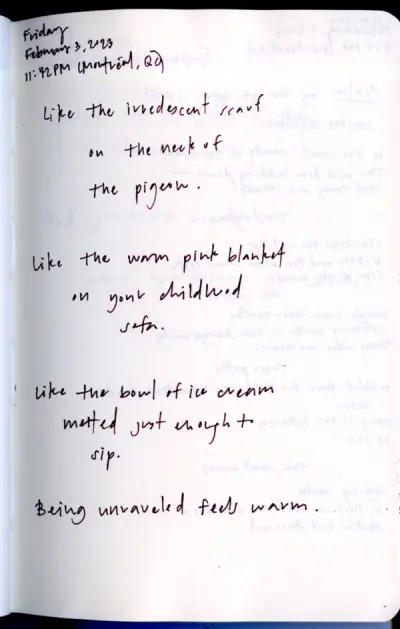 Friday
February 3, 2023
11:42PM (Montréal, QC)
Like the irredescent scarf
on the neck of
the pigeon.
Like the warm pink blanket
on your childhood
sofa.
Like the bowl of ice cream
melted just enough to
sip.
Being unraveled feels warm.